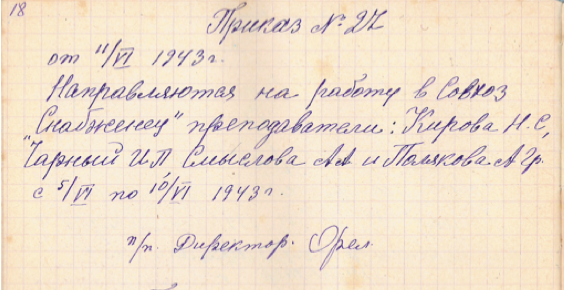 18
Приказ № 27
от 11/VI 1943 г.
Направляются на работу в Совхоз
"Снабженец" преподаватели: Кирова Н. С,
Чарный И П Смыслова А А и Полякова А Гр.
с 5/VI по 10/VI 1943 г.
п/п. Директор. Орел